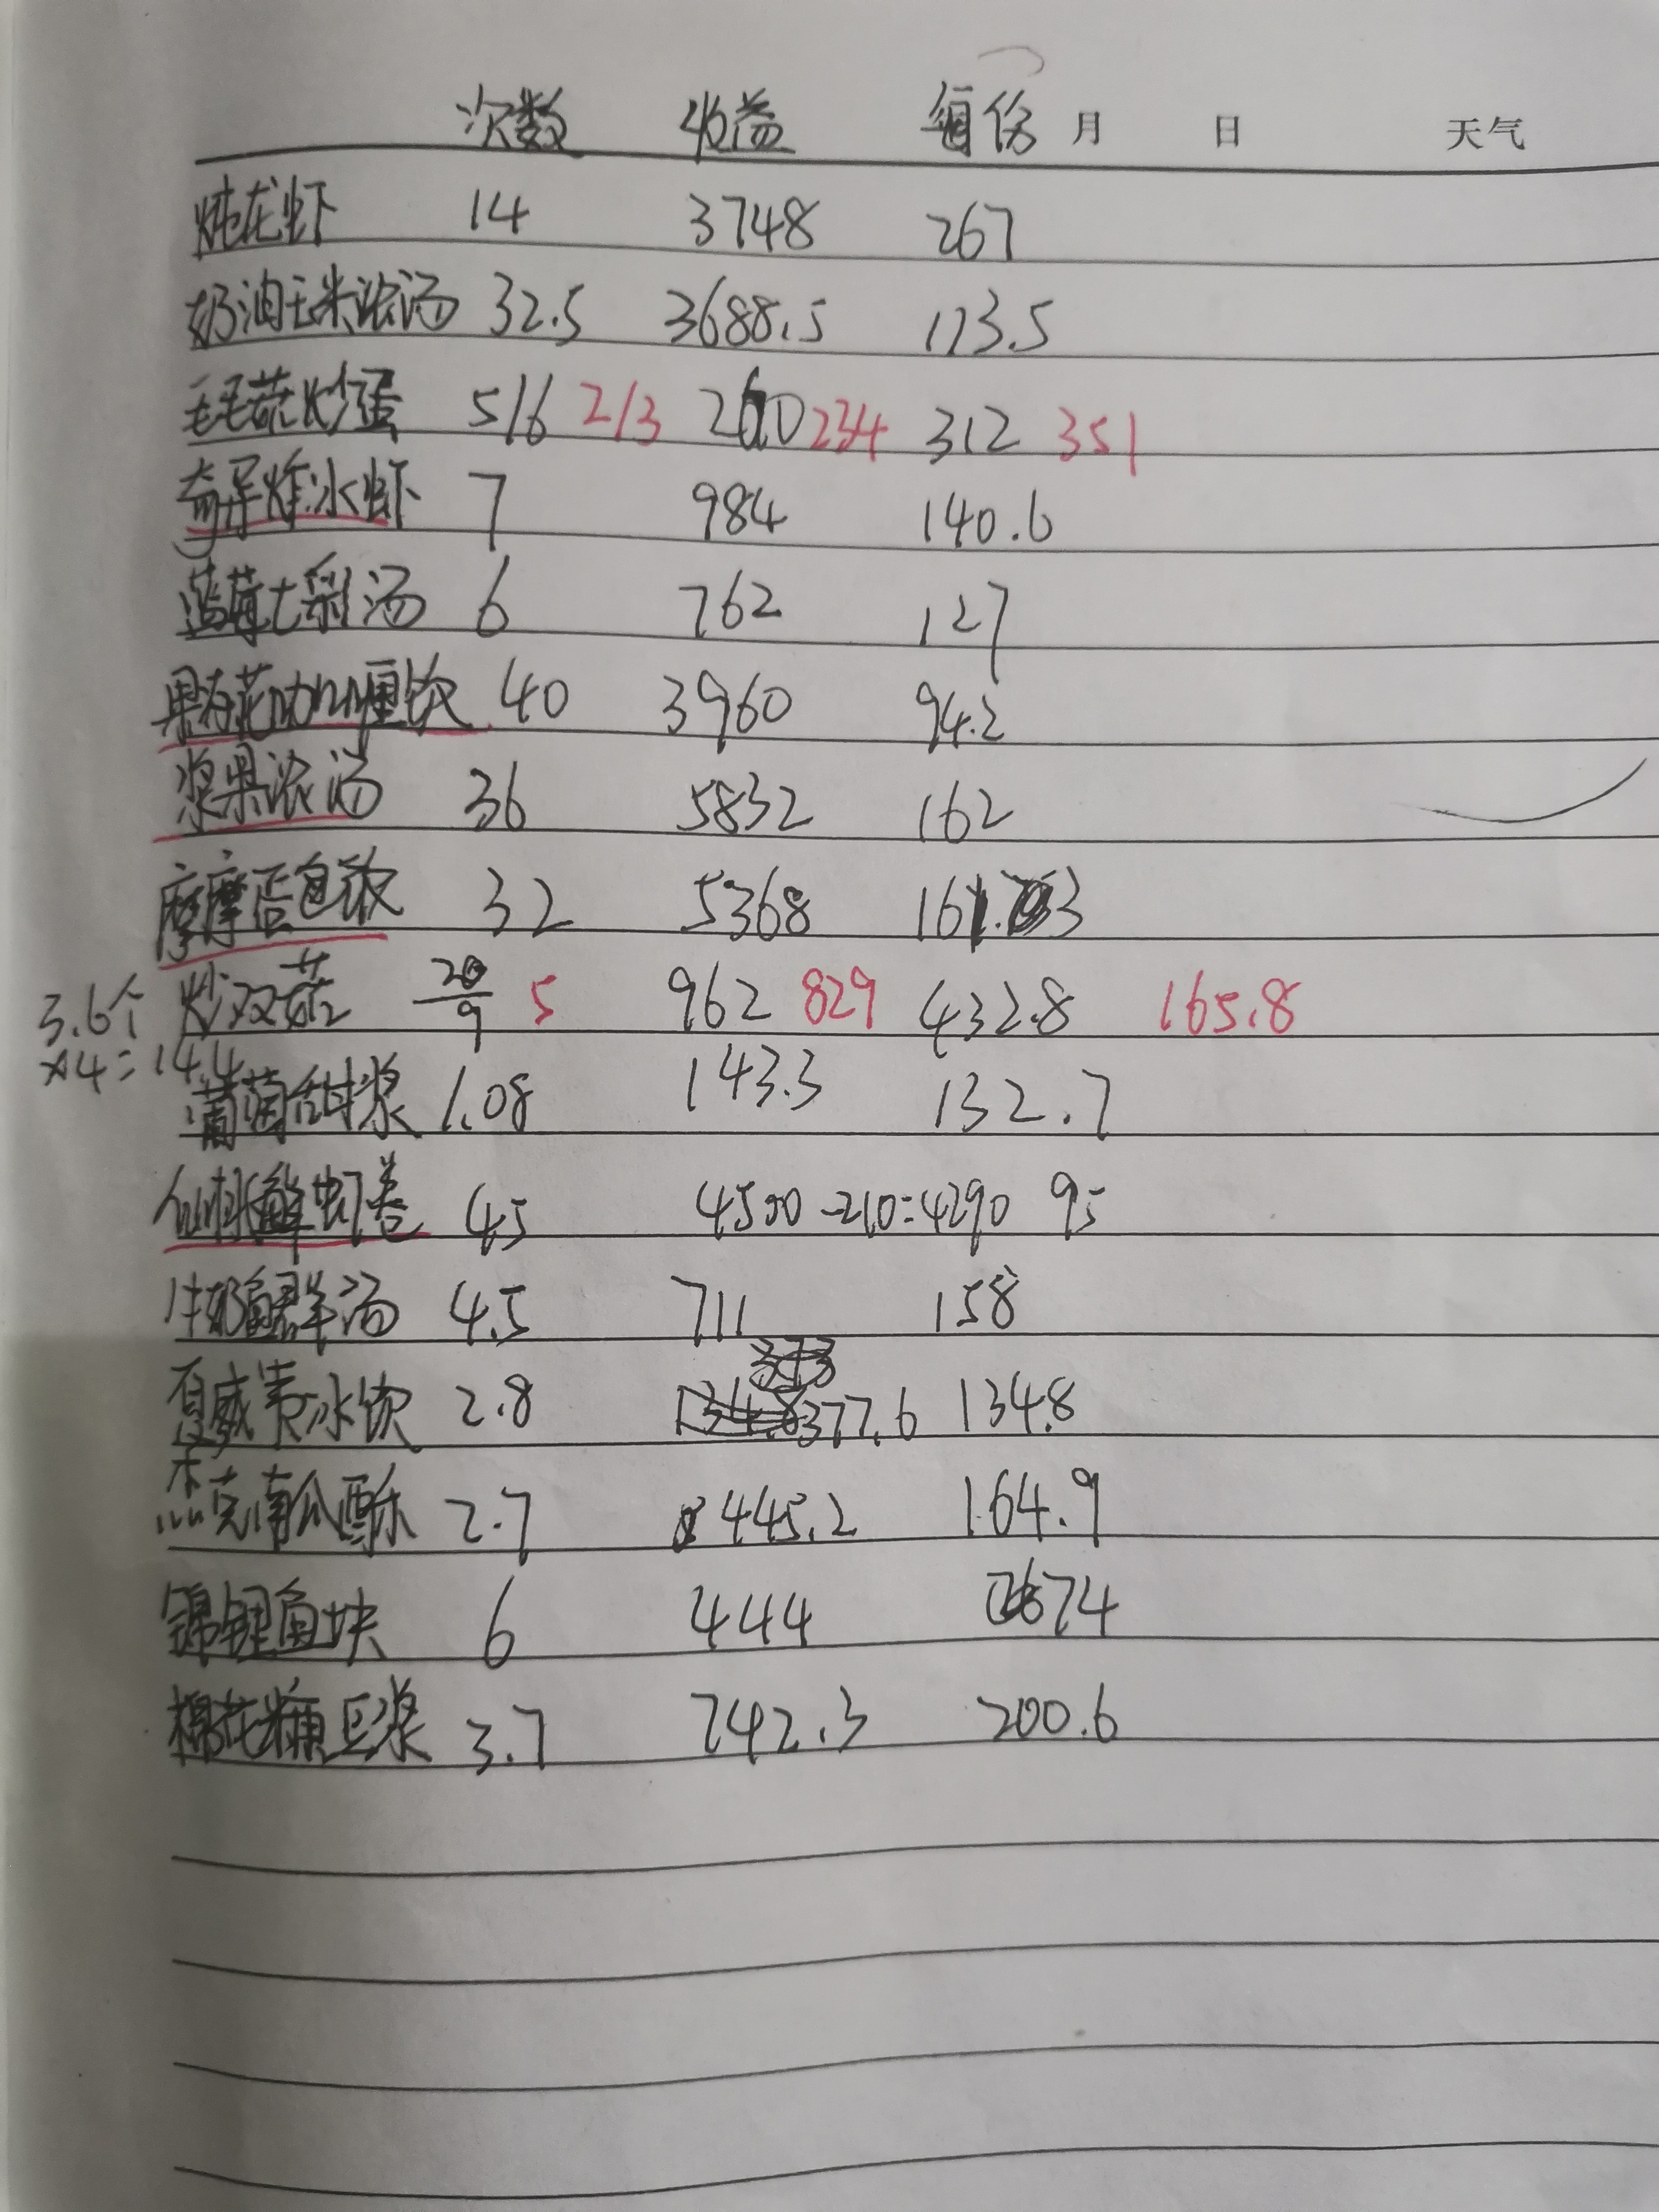 次数 收益 每份 月 日 天气
炖龙虾 14 3748 267
奶油玉米浓汤 32.5 3688.5 113.5
毛毛菇炒蛋 5/6 2/3 260 234 312 351
奇异炸冰虾 7 984 140.6
蓝莓七彩汤 6 762 127
果香花咖喱饮 40 3960 94.2
浆果浓汤 36 5832 162
摩摩蛋包饭 32 5368 161.3
3.6个 炒双菇 20/9 5 962 829 432.8 165.8
×4=14.4
葡萄甜浆 1.08 143.3 132.7
仙桃鲜虾卷 45 4500-210=4290 95
牛奶鱼羊汤 4.5 711 158
夏威夷冰饮 2.8 377.6 134.8
杰克南瓜酥 2.7 445.2 164.9
锦鲤鱼块 6 444 74
棉花糖豆浆 3.7 742.3 200.6